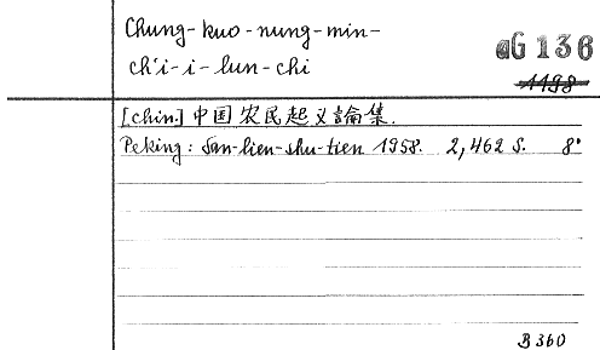 Chung-kuo-nung-min-
ch'i-i-lun-chi
aG 136
1198
[chin.] 中国农民起义論集.
Peking: San-lien-shu-tien 1958. 2,462 S. 8°
B 360